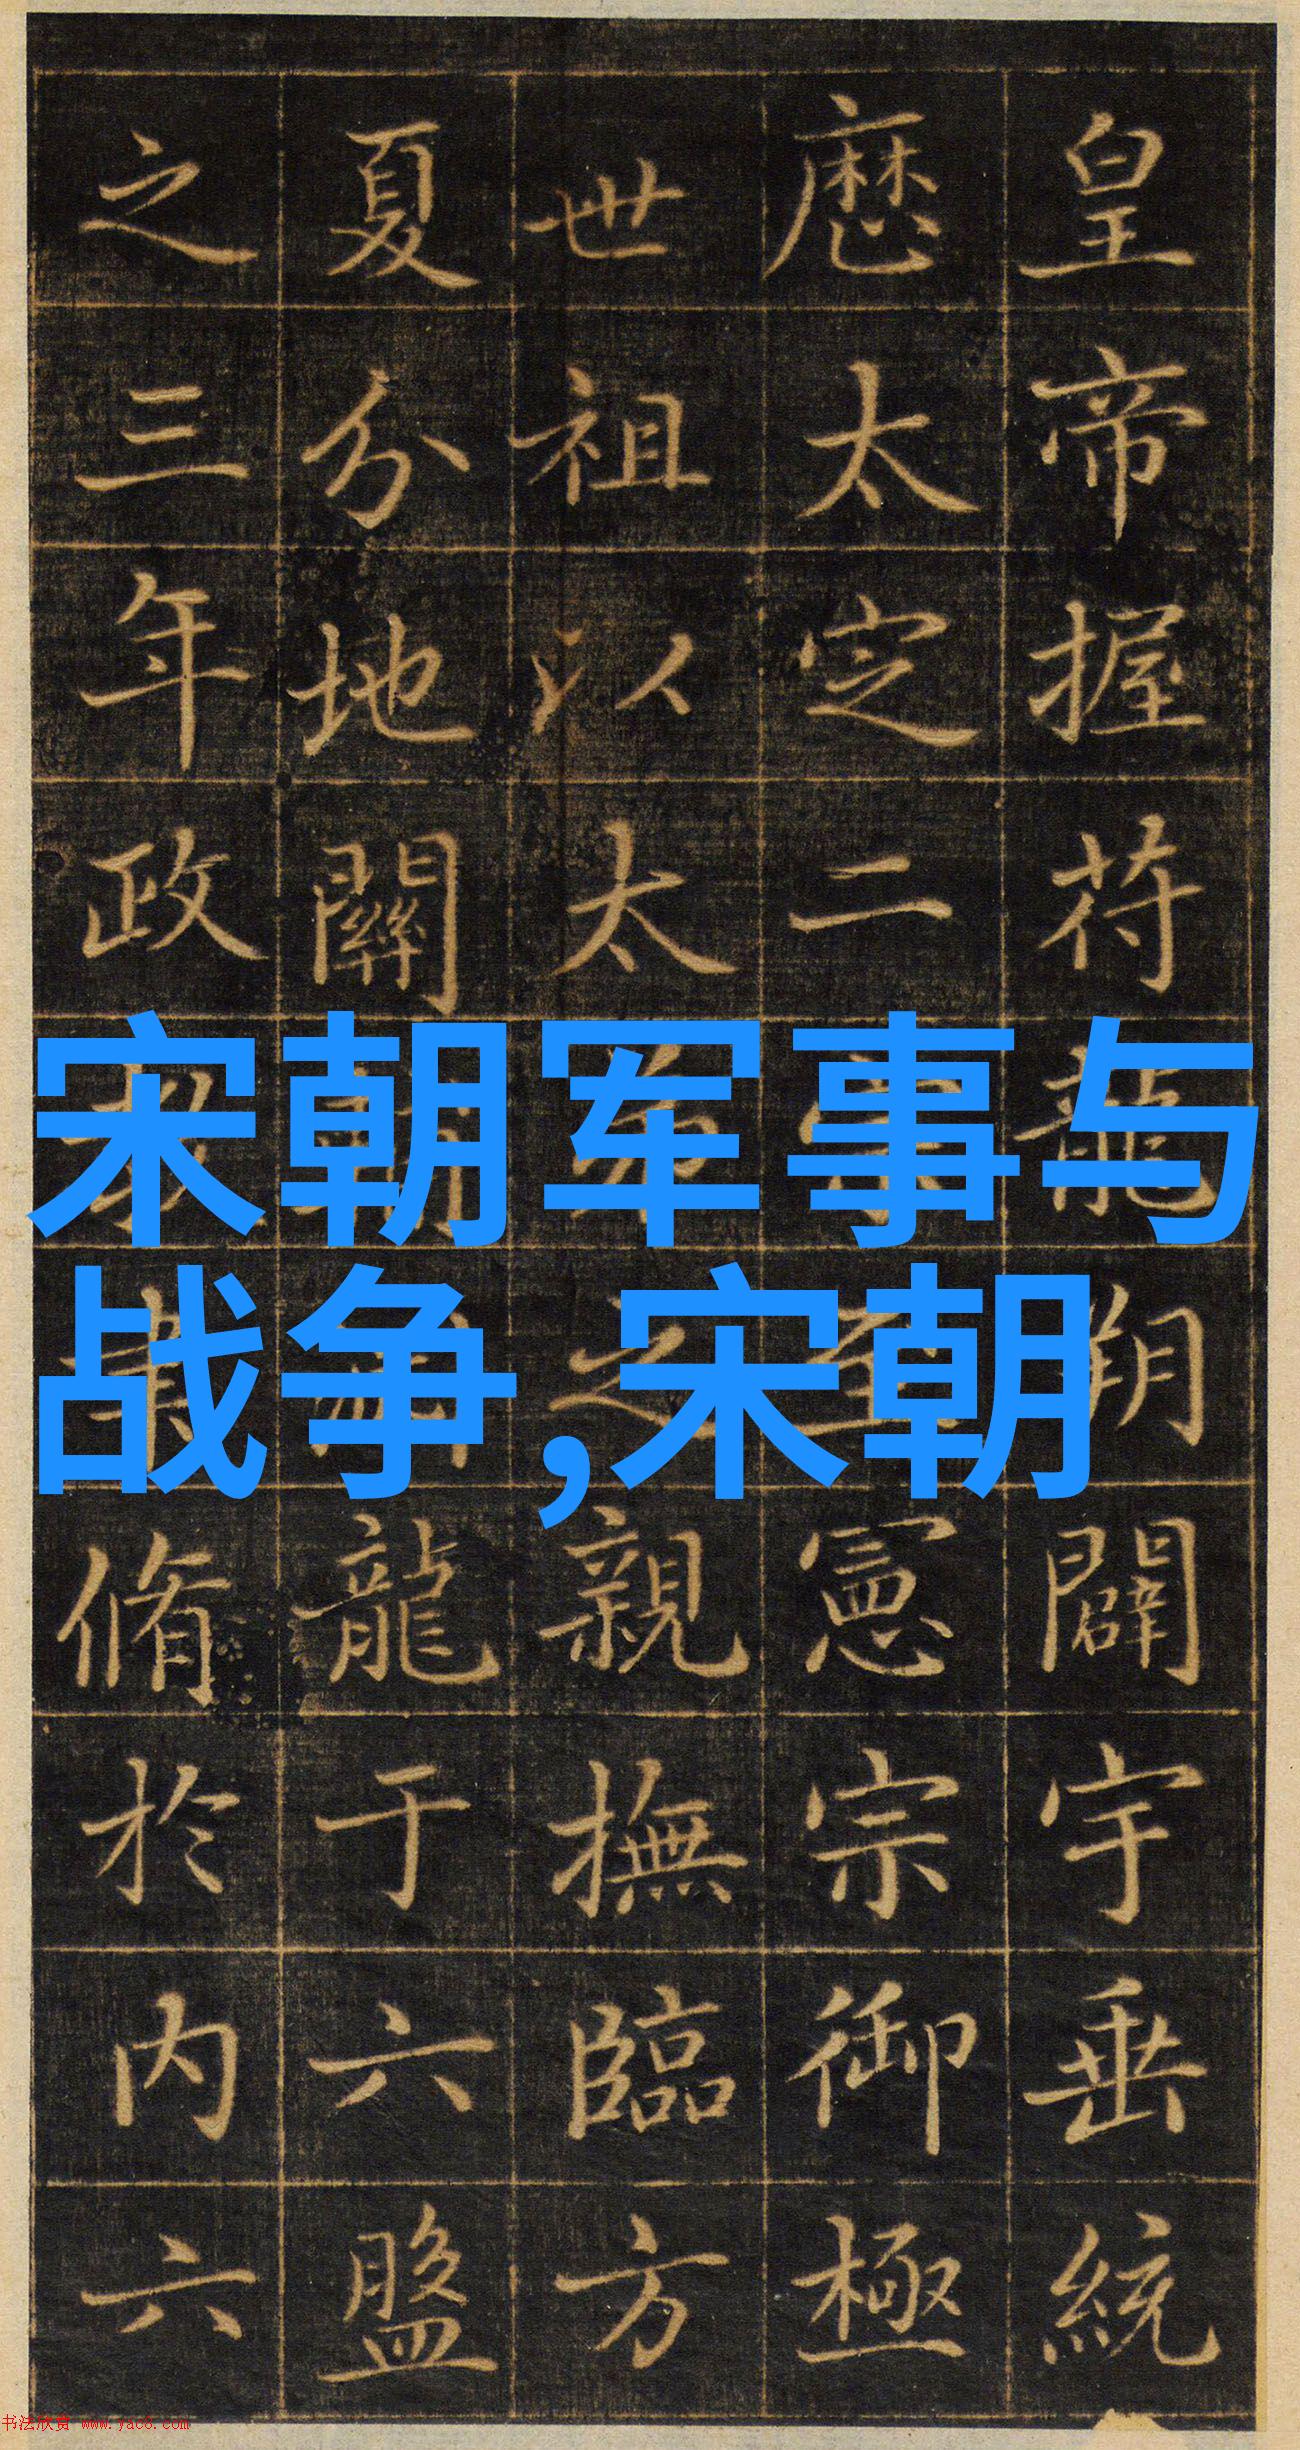 皇帝握苻龍朔闢宇垂統
厯太定二宗至憲宗御極
世祖以太弟之親撫臨方
夏分地關龍于六盤
之三年政教脩於内六
宋朝军事与
战争,宋朝
书法欣赏 www.yac8.com